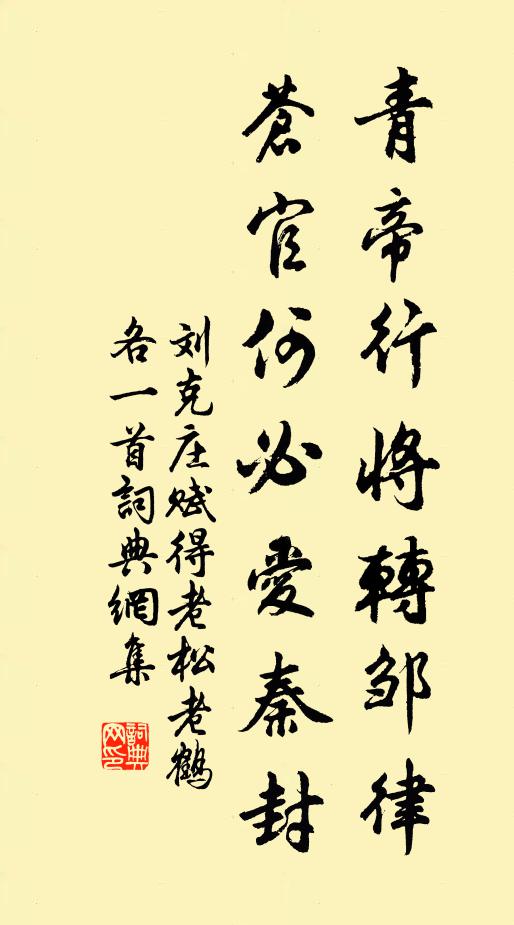 青帝行将轉邹律
蒼官何必愛秦封
刘克庄赋得老松老鶴
各一首詞典網集
詞典
网印